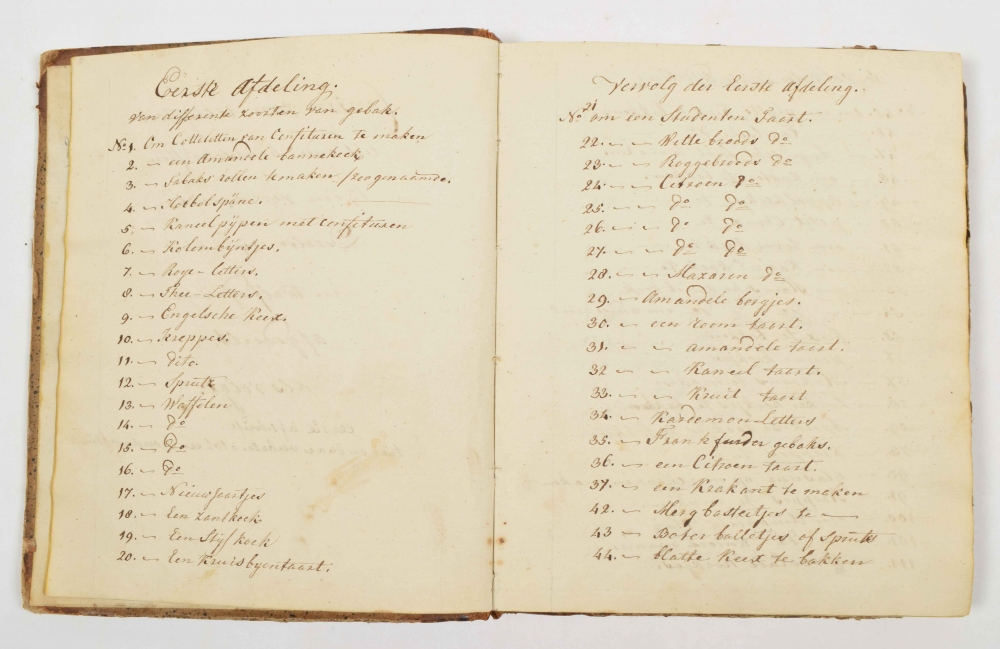 Eerste Afdeling.
van differente zoorten van gebak.
No 1. Om Cotteletten van Confituren te maken
2. — een Amandele pannekoek
3. — Tabaks rollen te maken / zoogenaamde.
4. — Hobelspäne.
5. — Kaneel pijpen met confituren
6. — Kolombijntjes.
7. — Roye-letters.
8. — Thee-Letters.
9. — Engelsche Keex.
10. — Kreppes.
11. — dito.
12. — Spruts
13. — Waffelen
14. — do
15. — do
16. — do
17. — Nieuwjaartjes
18. — Een Zantkoek.
19. — Een Stijfkoek
20. — Een Kruisbyentaart.
Vervolg der Eerste Afdeling.
No 21 om een Studenten Taart.
22. — — Witte broods do
23. — — Roggebroods do
24. — — Citroen do
25. — — do do
26. — — do do
27. — — do do
28. — — Mazaren do
29. — Amandele bergjes.
30. — een room taart.
31. — — amandele taart.
32 — — Kaneel taart.
33. — — Kruil taart
34. — Kardemon-Letters
35. — Frankfurder gebaks.
36. — een Citroen taart.
37. — een Krakant te maken
42. — Merg bastertjes te —
43 — Boter balletjes of Spruts
44. — blatte Keex te bakken